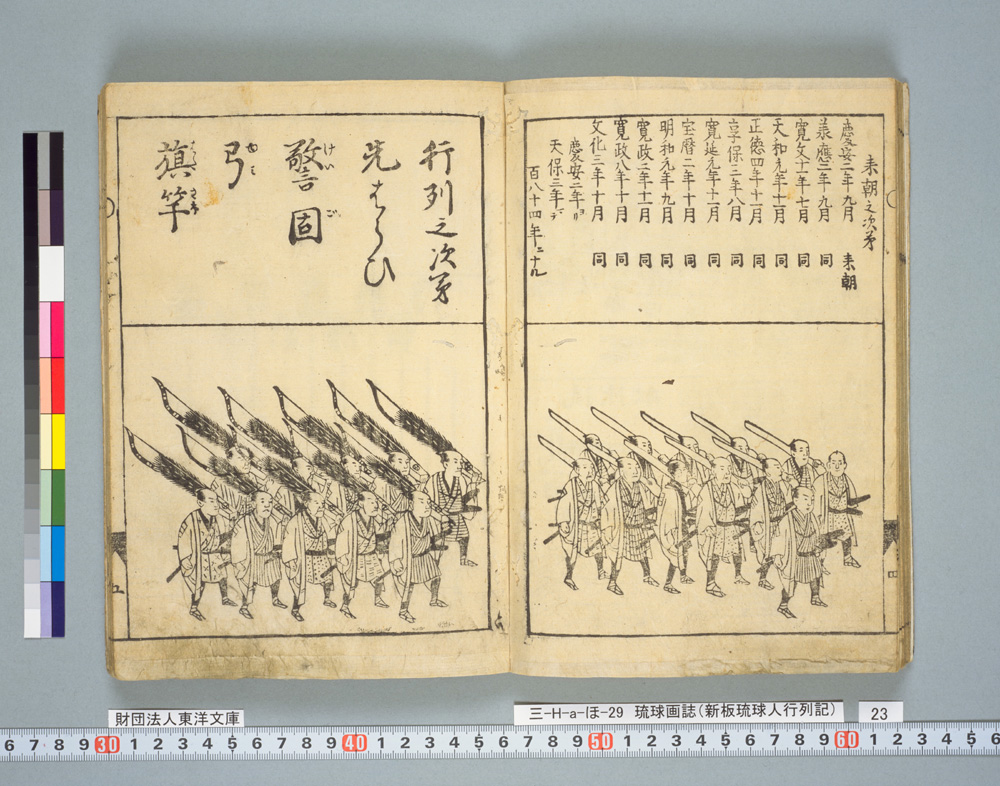 来朝之次第
慶安二年九月 来朝
承應二年九月 同
寛文十一年七月 同
天和元年十一月 同
正徳四年十一月 同
享保三年八月 同
寛延元年十一月 同
宝暦二年十月 同
明和元年九月 同
寛政二年十一月 同
寛政八年十月 同
文化三年十月 同
慶安二年ヨリ
天保三年マデ
百八十四年ニナル
四
行列之次第
先はらひ
警固
けい ご
弓
ゆミ
旗竿
はた さほ
五
財団法人東洋文庫
三-H-a-ほ-29 琉球画誌(新板琉球人行列記)
23
6 7 8 9 30 1 2 3 4 5 6 7 8 9 40 1 2 3 4 5 6 7 8 9 50 1 2 3 4 5 6 7 8 9 60 1 2 3 4 5 6